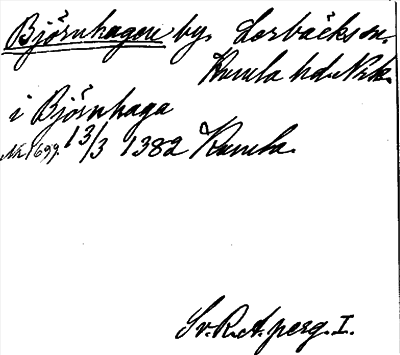 Björnhagen by. Lerbäcks sn.
Kumla hd. Nrk.
i Björnhaga
Nr. 1699. 13/3 1382 Kumla.
Sv. R. A. perg. I.